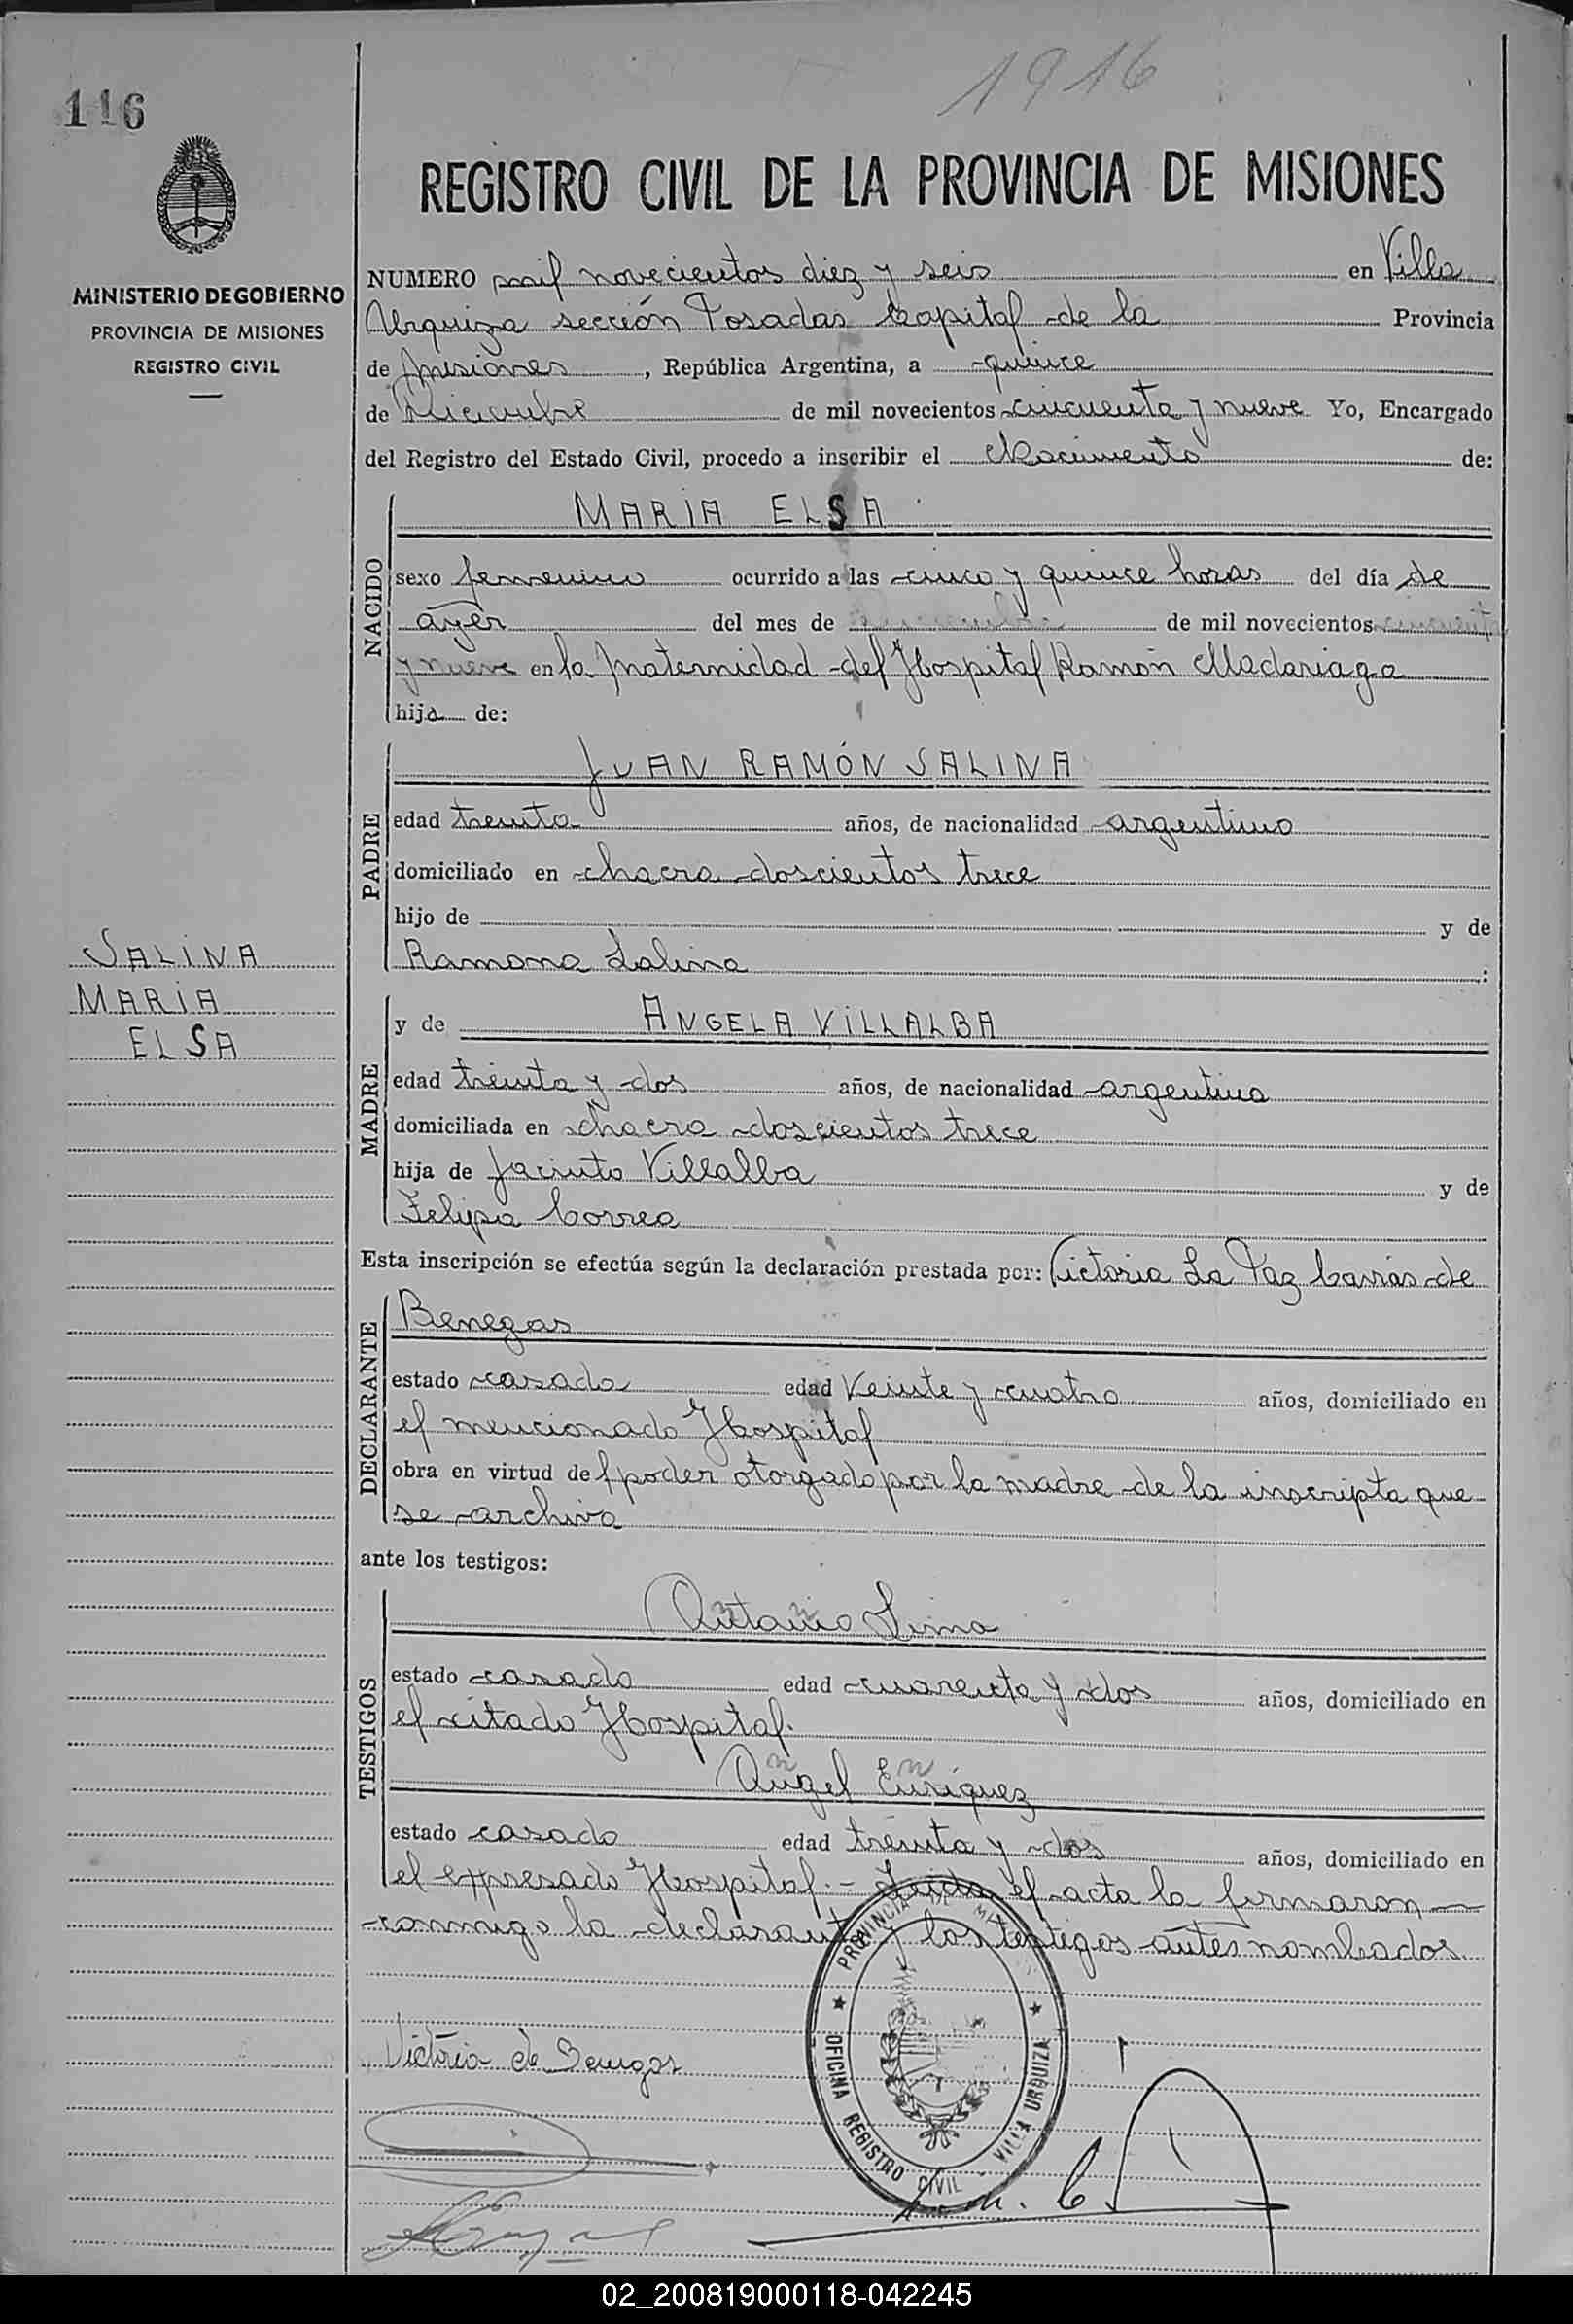 1916
116
REGISTRO CIVIL DE LA PROVINCIA DE MISIONES
MINISTERIO DE GOBIERNO
PROVINCIA DE MISIONES
REGISTRO CIVIL
NUMERO mil novecientos diez y seis en Villa
Urquiza sección Posadas Capital de la Provincia
de Misiones, República Argentina, a quince
de Diciembre de mil novecientos cincuenta y nueve Yo, Encargado
del Registro del Estado Civil, procedo a inscribir el Nacimiento de:
NACIDO
MARIA ELSA
sexo femenino ocurrido a las cinco y quince horas del día de
ayer del mes de Diciembre de mil novecientos cincuenta
y nueve en la Maternidad del Hospital Ramón Madariaga
hija de:
PADRE
JUAN RAMÓN SALINA
edad treinta años, de nacionalidad argentino
domiciliado en chacra doscientos trece
hijo de y de
Ramona Salina :
SALINA
MARIA
ELSA
MADRE
y de ANGELA VILLALBA
edad treinta y dos años, de nacionalidad argentina
domiciliada en chacra doscientos trece
hija de Jacinto Villalba y de
Felipa Correa
Esta inscripción se efectúa según la declaración prestada por: Victoria La Paz de
DECLARANTE
Benegas
estado casada edad veinte y cuatro años, domiciliado en
el mencionado Hospital
obra en virtud de poder otorgado por la madre de la inscripta que
se archiva
ante los testigos:
TESTIGOS
Antonio Lima
estado casado edad cuarenta y dos años, domiciliado en
el citado Hospital.
Angel Enriquez
estado casado edad treinta y dos años, domiciliado en
el expresado Hospital.- Leida el acta la firmaron
conmigo la declarante y los testigos antes nombados.
PROVINCIA DE MISIONES
OFICINA REGISTRO CIVIL VILLA URQUIZA
Victoria de Benegas
02_200819000118-042245